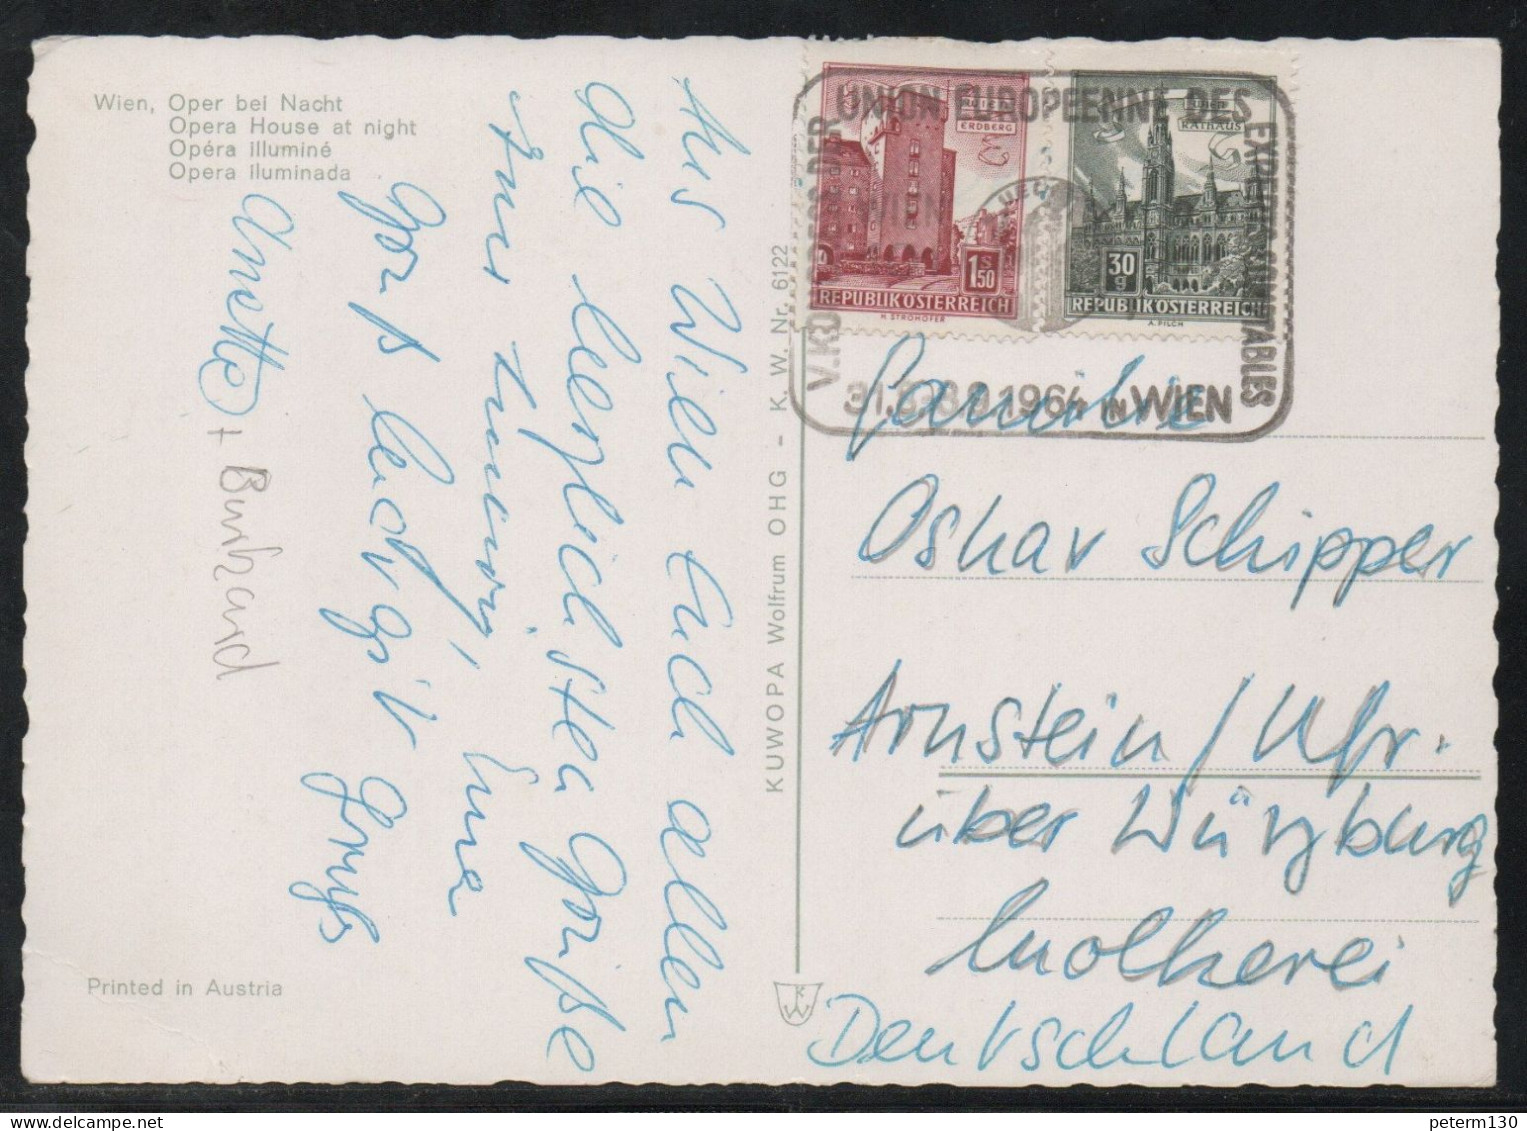 Wien, Oper bei Nacht
Opera House at night
Opéra illuminé
Opera iluminada
Aus Wien Euch allen
die herzlichsten Grüße
Eure
Grüß
Gruß
Anette
+ Burkhard
Printed in Austria
KUWOPA Wolfrum OHG - K. W. Nr. 6122
KW
RUINE
ERDBERG
WIEN
1S50
REPUBLIK ÖSTERREICH
H. STROHOFER
WIEN
RATHAUS
30 g
REPUBLIK ÖSTERREICH
A. PILCH
UNION EUROPEENNE DES
EXPERTS COMPTABLES
1964 IN WIEN
Familie
Oskar Schipper
Arnstein / Ufr.
über Würzburg
Molkerei
Deutschland
peterm130